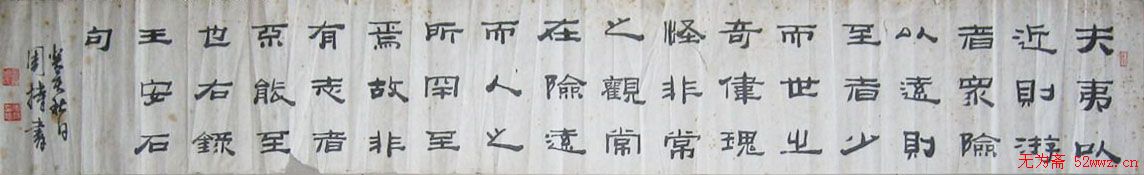 夫夷以
近則游
者眾險
以遠則
至者少
而世之
奇偉瑰
怪非常
之觀常
在險遠
而人之
所罕至
焉故非
有志者
不能至
也右錄
王安石
句
癸亥秋日
周持書
无为斋 52wwz.cn